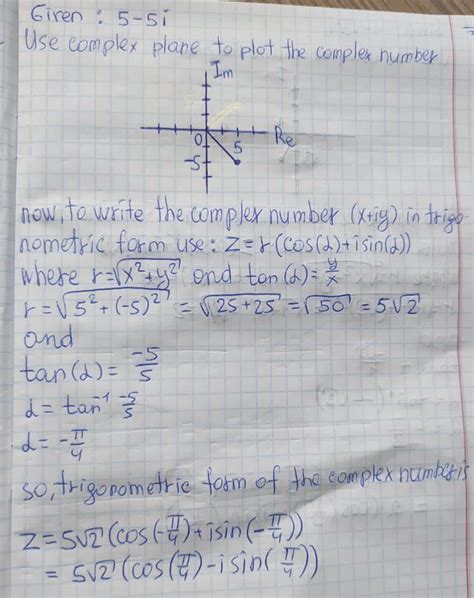 Given : 5-5i
Use complex plane to plot the complex number
Im
0 5 Re
-5
now, to write the complex number (x+iy) in trigo
nometric form use: Z=r(cos(α)+isin(α))
where r=√(x²+y²) and tan(α)=y/x
r=√(5²+(-5)²)=√(25+25)=√50=5√2
and
tan(α)=-5/5
α=tan⁻¹ -5/5
α=-π/4
so, trigonometric form of the complex number is
Z=5√2(cos(-π/4)+isin(-π/4))
=5√2(cos(π/4)-isin(π/4))